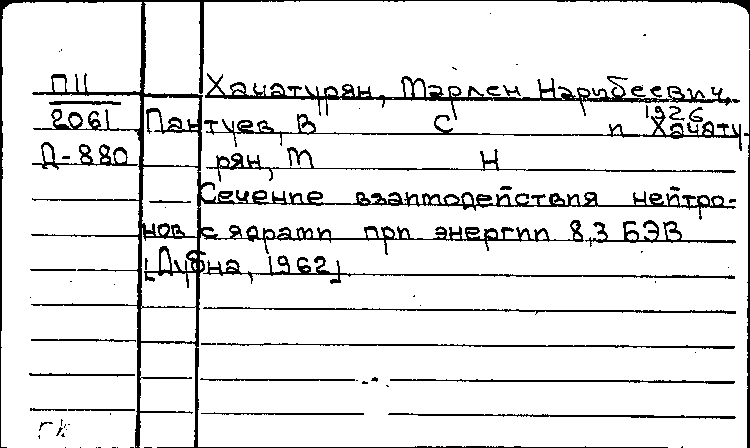 П11 Хачатурян, Марлен Нарибеевич,
1926
2061 Пантуев, В С п Хачату-
Д-880 рян, М Н
Сечение взаимодействия нейтро-
нов с ядрами при энергии 8,3 БЭВ
[Дубна, 1962]
гк